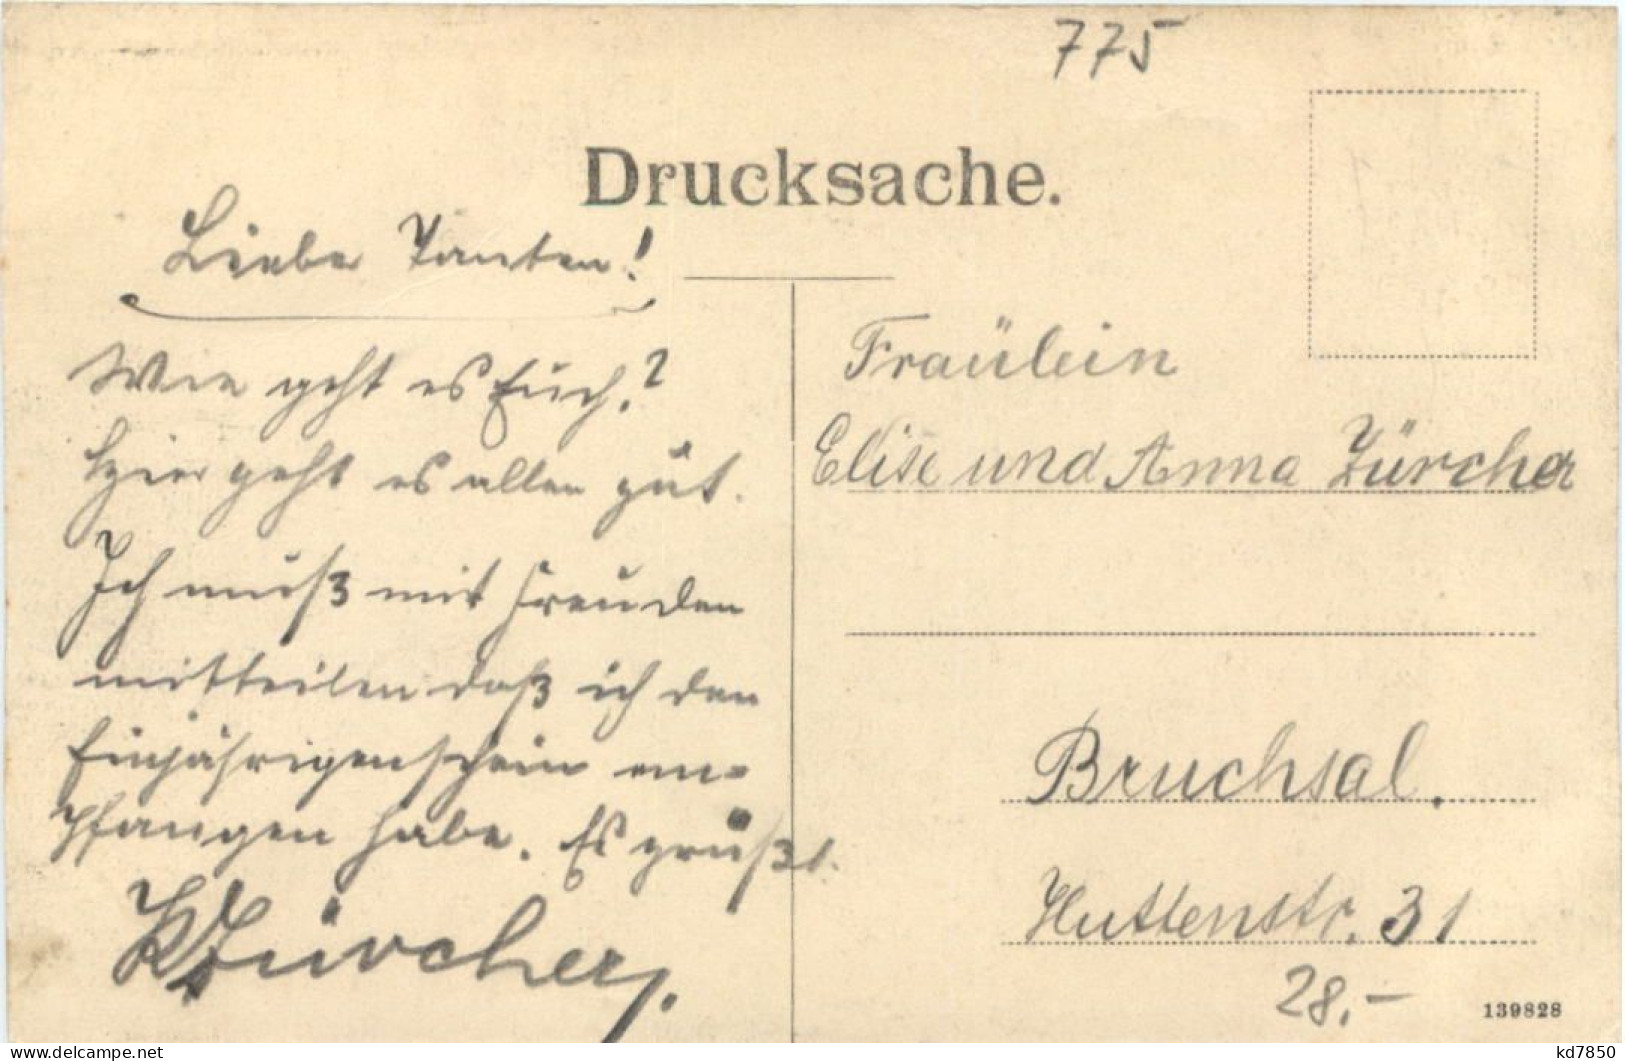 775
Drucksache.
Liebe Tanten!
Wie geht es Euch?
Hier geht es allen gut.
Ich muß mit Freuden
mitteilen daß ich den
Einjährigenschein em-
pfangen habe. Es grüßt
K Zürcher.
Fräulein
Elise und Anna Zürcher
Bruchsal.
Huttenstr. 31
28,-
139828
www.delcampe.net
kd7850